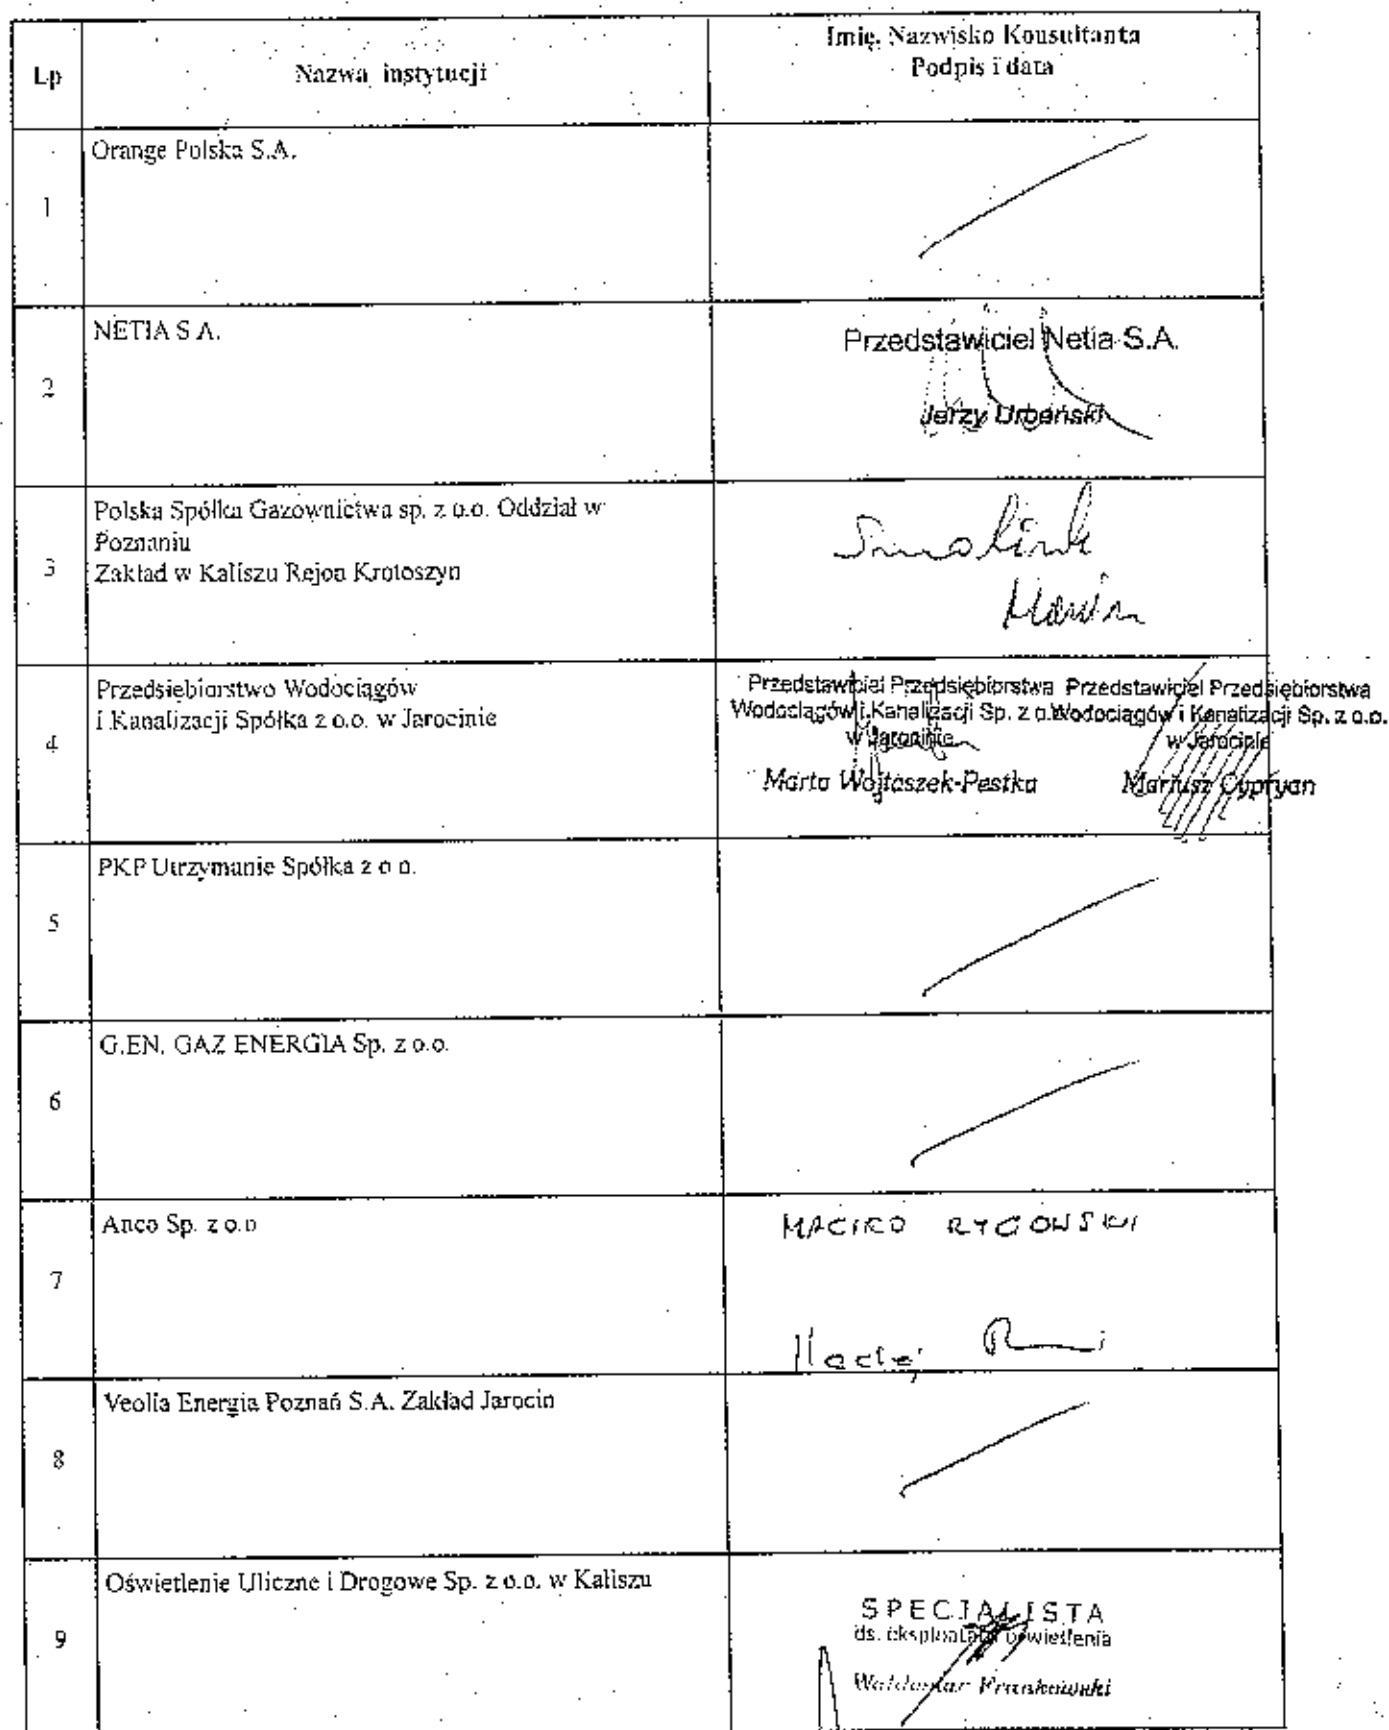 Lp
Nazwa instytucji
Imię, Nazwisko Konsultanta
Podpis i data
1
Orange Polska S.A.
2
NETIA S.A.
Przedstawiciel Netia S.A.
Jerzy Urbański
3
Polska Spółka Gazownictwa sp. z o.o. Oddział w
Poznaniu
Zakład w Kaliszu Rejon Krotoszyn
Marcin
4
Przedsiębiorstwo Wodociągów
i Kanalizacji Spółka z o.o. w Jarocinie
Przedstawiciel Przedsiębiorstwa
Wodociągów i Kanalizacji Sp. z o.o.
w Jarocinie
Marta Wojtaszek-Pestka
Przedstawiciel Przedsiębiorstwa
Wodociągów i Kanalizacji Sp. z o.o.
w Jarocinie
Mariusz Cypryan
5
PKP Utrzymanie Spółka z o.o.
6
G.EN. GAZ ENERGIA Sp. z o.o.
7
Anco Sp. z o.o
MACIEJ RYGOWSKI
Maciej
8
Veolia Energia Poznań S.A. Zakład Jarocin
9
Oświetlenie Uliczne i Drogowe Sp. z o.o. w Kaliszu
SPECJALISTA
ds. eksploatacji oświetlenia
Waldemar Frankowski